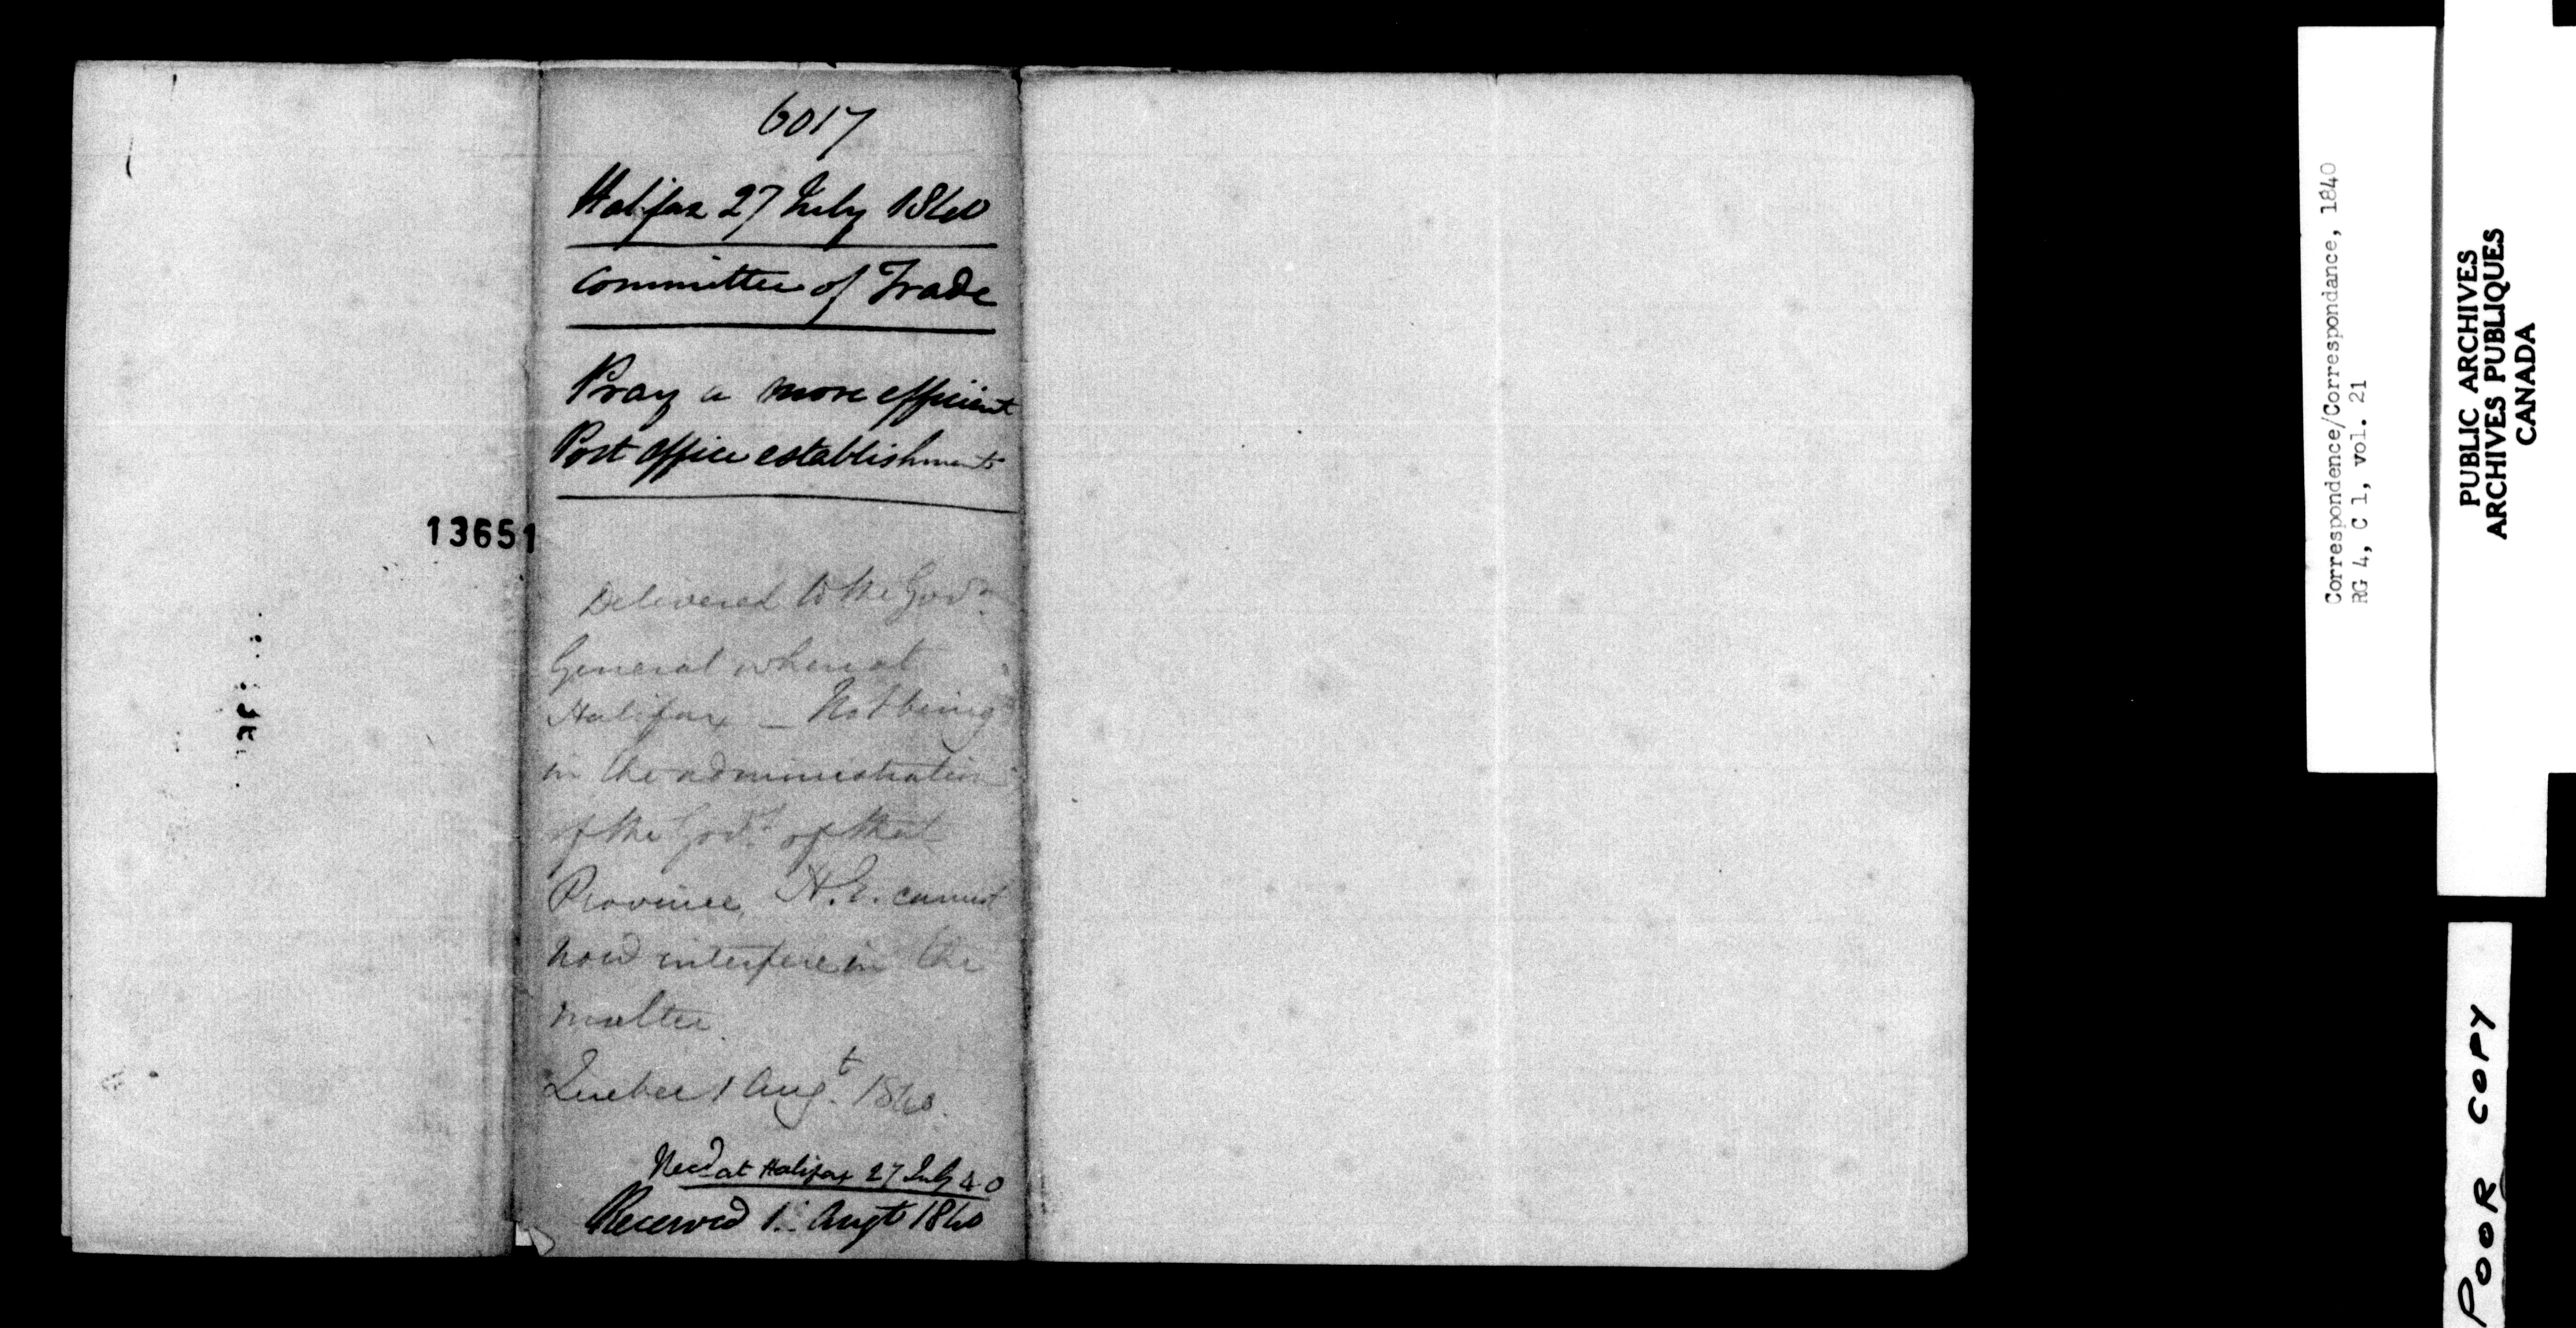 6017
Halifax 27 July 1840
Committee of Trade
Pray a more efficient
Post office establishment
13651
Delivered to the Govr.
General when at
Halifax — Not being
in the administration
of the Govt. of that
Province, H.E. cannot
now interfere in the
matter.
Quebec 1 Augt. 1840.
Recd at Halifax 27 July 40
Received 1. Augt 1840
Correspondence/Correspondance, 1840
RG 4, C 1, vol. 21
PUBLIC ARCHIVES
ARCHIVES PUBLIQUES
CANADA
POOR COPY